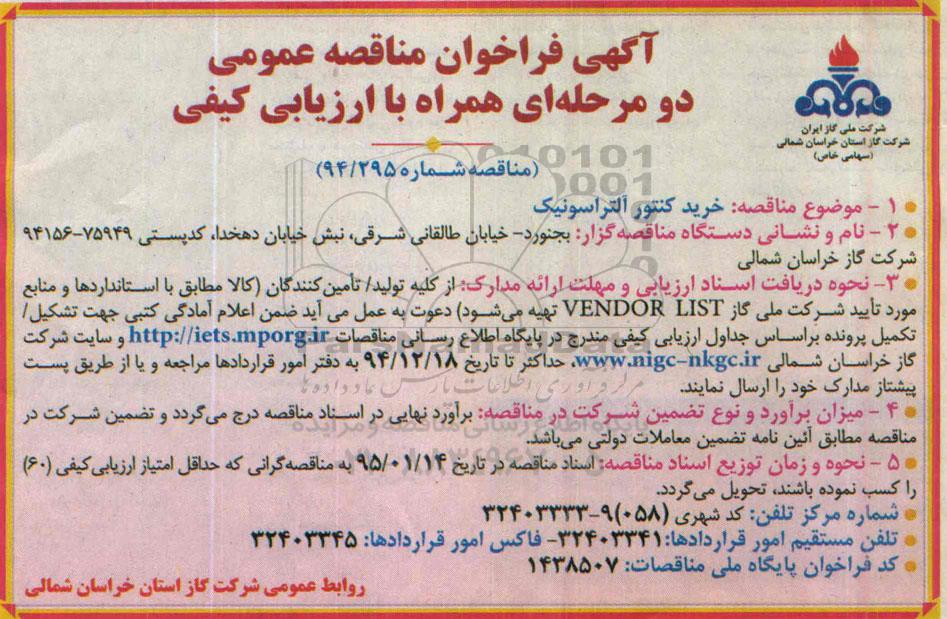 آگهی فراخوان مناقصه عمومی
دو مرحله‌ای همراه با ارزیابی کیفی
شرکت ملی گاز ایران
شرکت گاز استان خراسان شمالی
(سهامی خاص)
(مناقصه شماره ۹۴/۲۹۵)
۱ - موضوع مناقصه: خرید کنتور آلتراسونیک
۲ - نام و نشانی دستگاه مناقصه‌گزار: بجنورد- خیابان طالقانی شرقی، نبش خیابان دهخدا، کدپستی ۷۵۹۴۹-۹۴۱۵۶
شرکت گاز خراسان شمالی
۳- نحوه دریافت اسناد ارزیابی و مهلت ارائه مدارک: از کلیه تولید/ تأمین‌کنندگان (کالا مطابق با استانداردها و منابع
مورد تأیید شرکت ملی گاز VENDOR LIST تهیه می‌شود) دعوت به عمل می آید ضمن اعلام آمادگی کتبی جهت تشکیل/
تکمیل پرونده براساس جداول ارزیابی کیفی مندرج در پایگاه اطلاع رسانی مناقصات http://iets.mporg.ir و سایت شرکت
گاز خراسان شمالی www.nigc-nkgc.ir، حداکثر تا تاریخ ۹۴/۱۲/۱۸ به دفتر امور قراردادها مراجعه و یا از طریق پست
پیشتاز مدارک خود را ارسال نمایند.
۴ - میزان برآورد و نوع تضمین شرکت در مناقصه: برآورد نهایی در اسناد مناقصه درج می‌گردد و تضمین شرکت در
مناقصه مطابق آئین نامه تضمین معاملات دولتی می‌باشد.
۵ - نحوه و زمان توزیع اسناد مناقصه: اسناد مناقصه در تاریخ ۹۵/۰۱/۱۴ به مناقصه‌گرانی که حداقل امتیاز ارزیابی‌کیفی (۶۰)
را کسب نموده باشند، تحویل می‌گردد.
شماره مرکز تلفن: کد شهری (۰۵۸)۹-۳۲۴۰۳۳۳۳
تلفن مستقیم امور قراردادها:۳۲۴۰۳۳۴۱- فاکس امور قراردادها: ۳۲۴۰۳۳۴۵
کد فراخوان پایگاه ملی مناقصات: ۱۴۳۸۵۰۷
روابط عمومی شرکت گاز استان خراسان شمالی